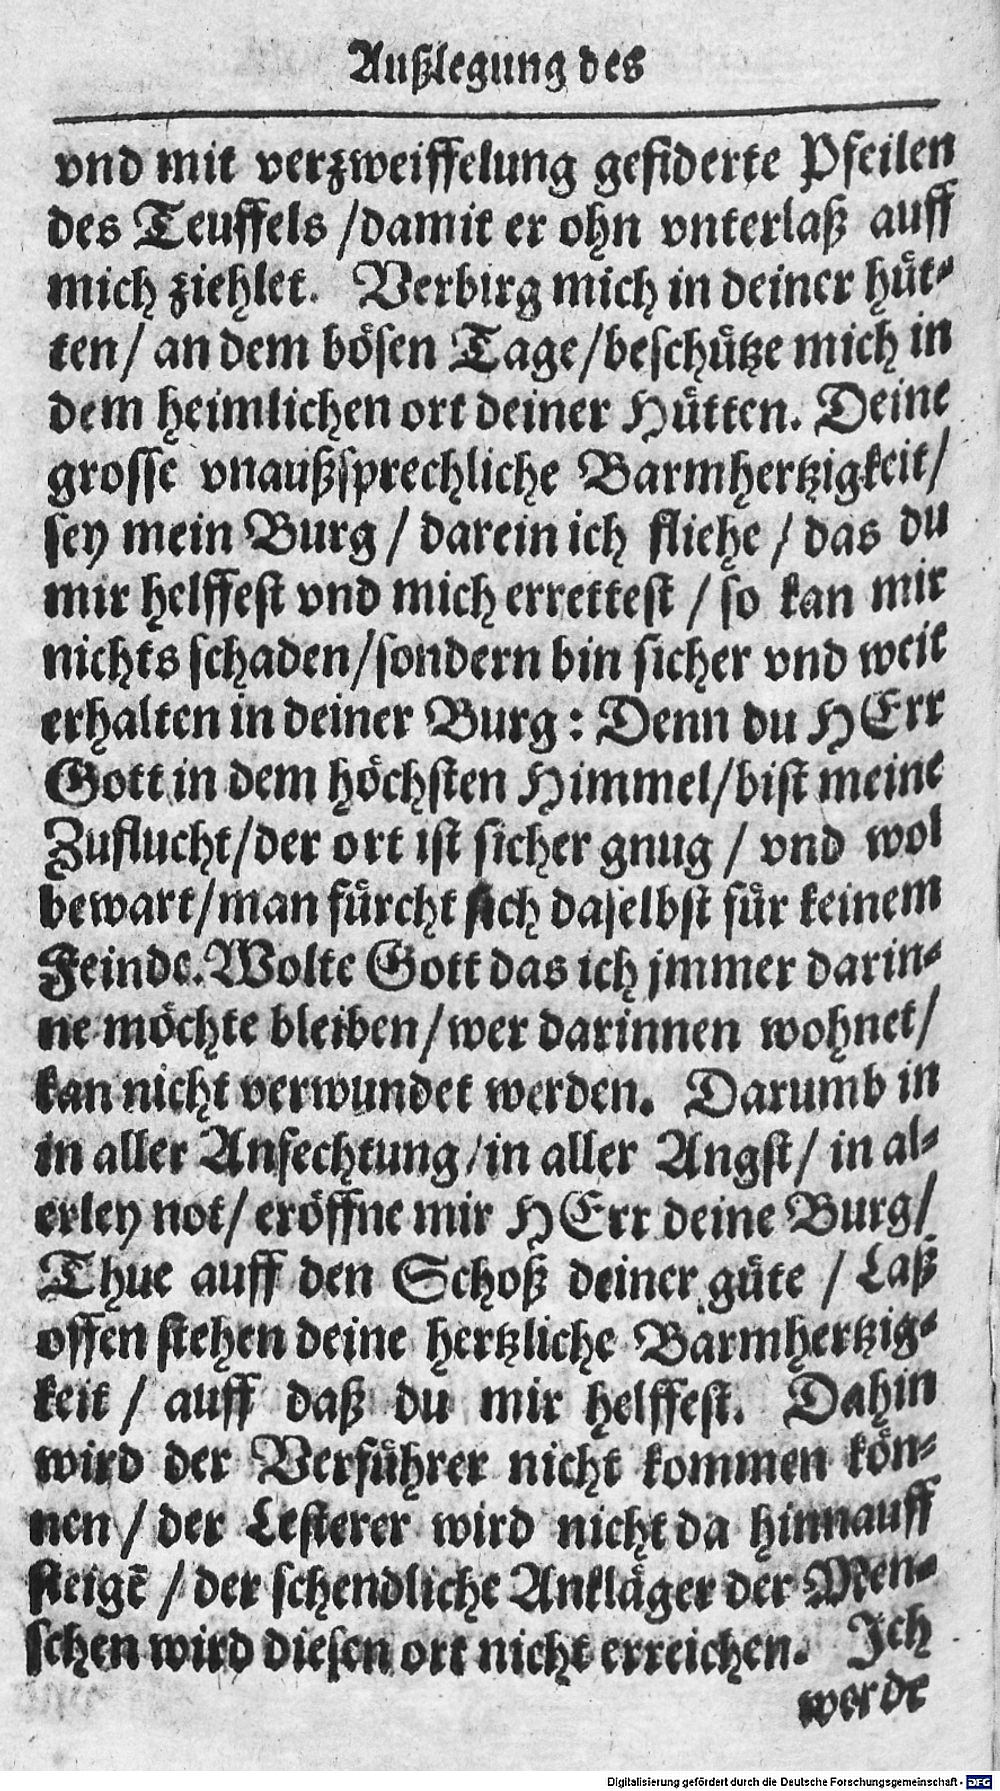 Außlegung des
vnd mit verzweiffelung gefiderte Pfeilen
des Teuffels /damit er ohn vnterlaß auff
mich ziehlet. Verbirg mich in deiner huͤt-
ten/ an dem boͤsen Tage/beschuͤtze mich in
dem heimlichen ort deiner Huͤtten. Deine
grosse vnaußsprechliche Barmhertzigkeit/
sey mein Burg / darein ich fliehe / das du
mir helffest vnd mich errettest / so kan mir
nichts schaden/sondern bin sicher vnd weit
erhalten in deiner Burg : Denn du HErr
Gott in dem hoͤchsten Himmel/bist meine
Zuflucht/der ort ist sicher gnug / vnd wol
bewart/man fuͤrcht sich daselbst fuͤr keinem
Feinde. Wolte Gott das ich jmmer darin-
ne moͤchte bleiben/wer darinnen wohnet/
kan nicht verwundet werden. Darumb in
in aller Anfechtung/in aller Angst/ in al-
erley not/ eroͤffne mir HErr deine Burg/
Thue auff den Schoß deiner guͤte / Laß
offen stehen deine hertzliche Barmhertzig-
keit / auff daß du mir helffest. Dahin
wird der Verfuͤhrer nicht kommen koͤn-
nen / der Lesterer wird nicht da hinnauff
steigē / der schendliche Anklaͤger der Men-
schen wird diesen ort nicht erreichen. Ich
werde
Digitalisierung gefördert durch die Deutsche Forschungsgemeinschaft - DFG